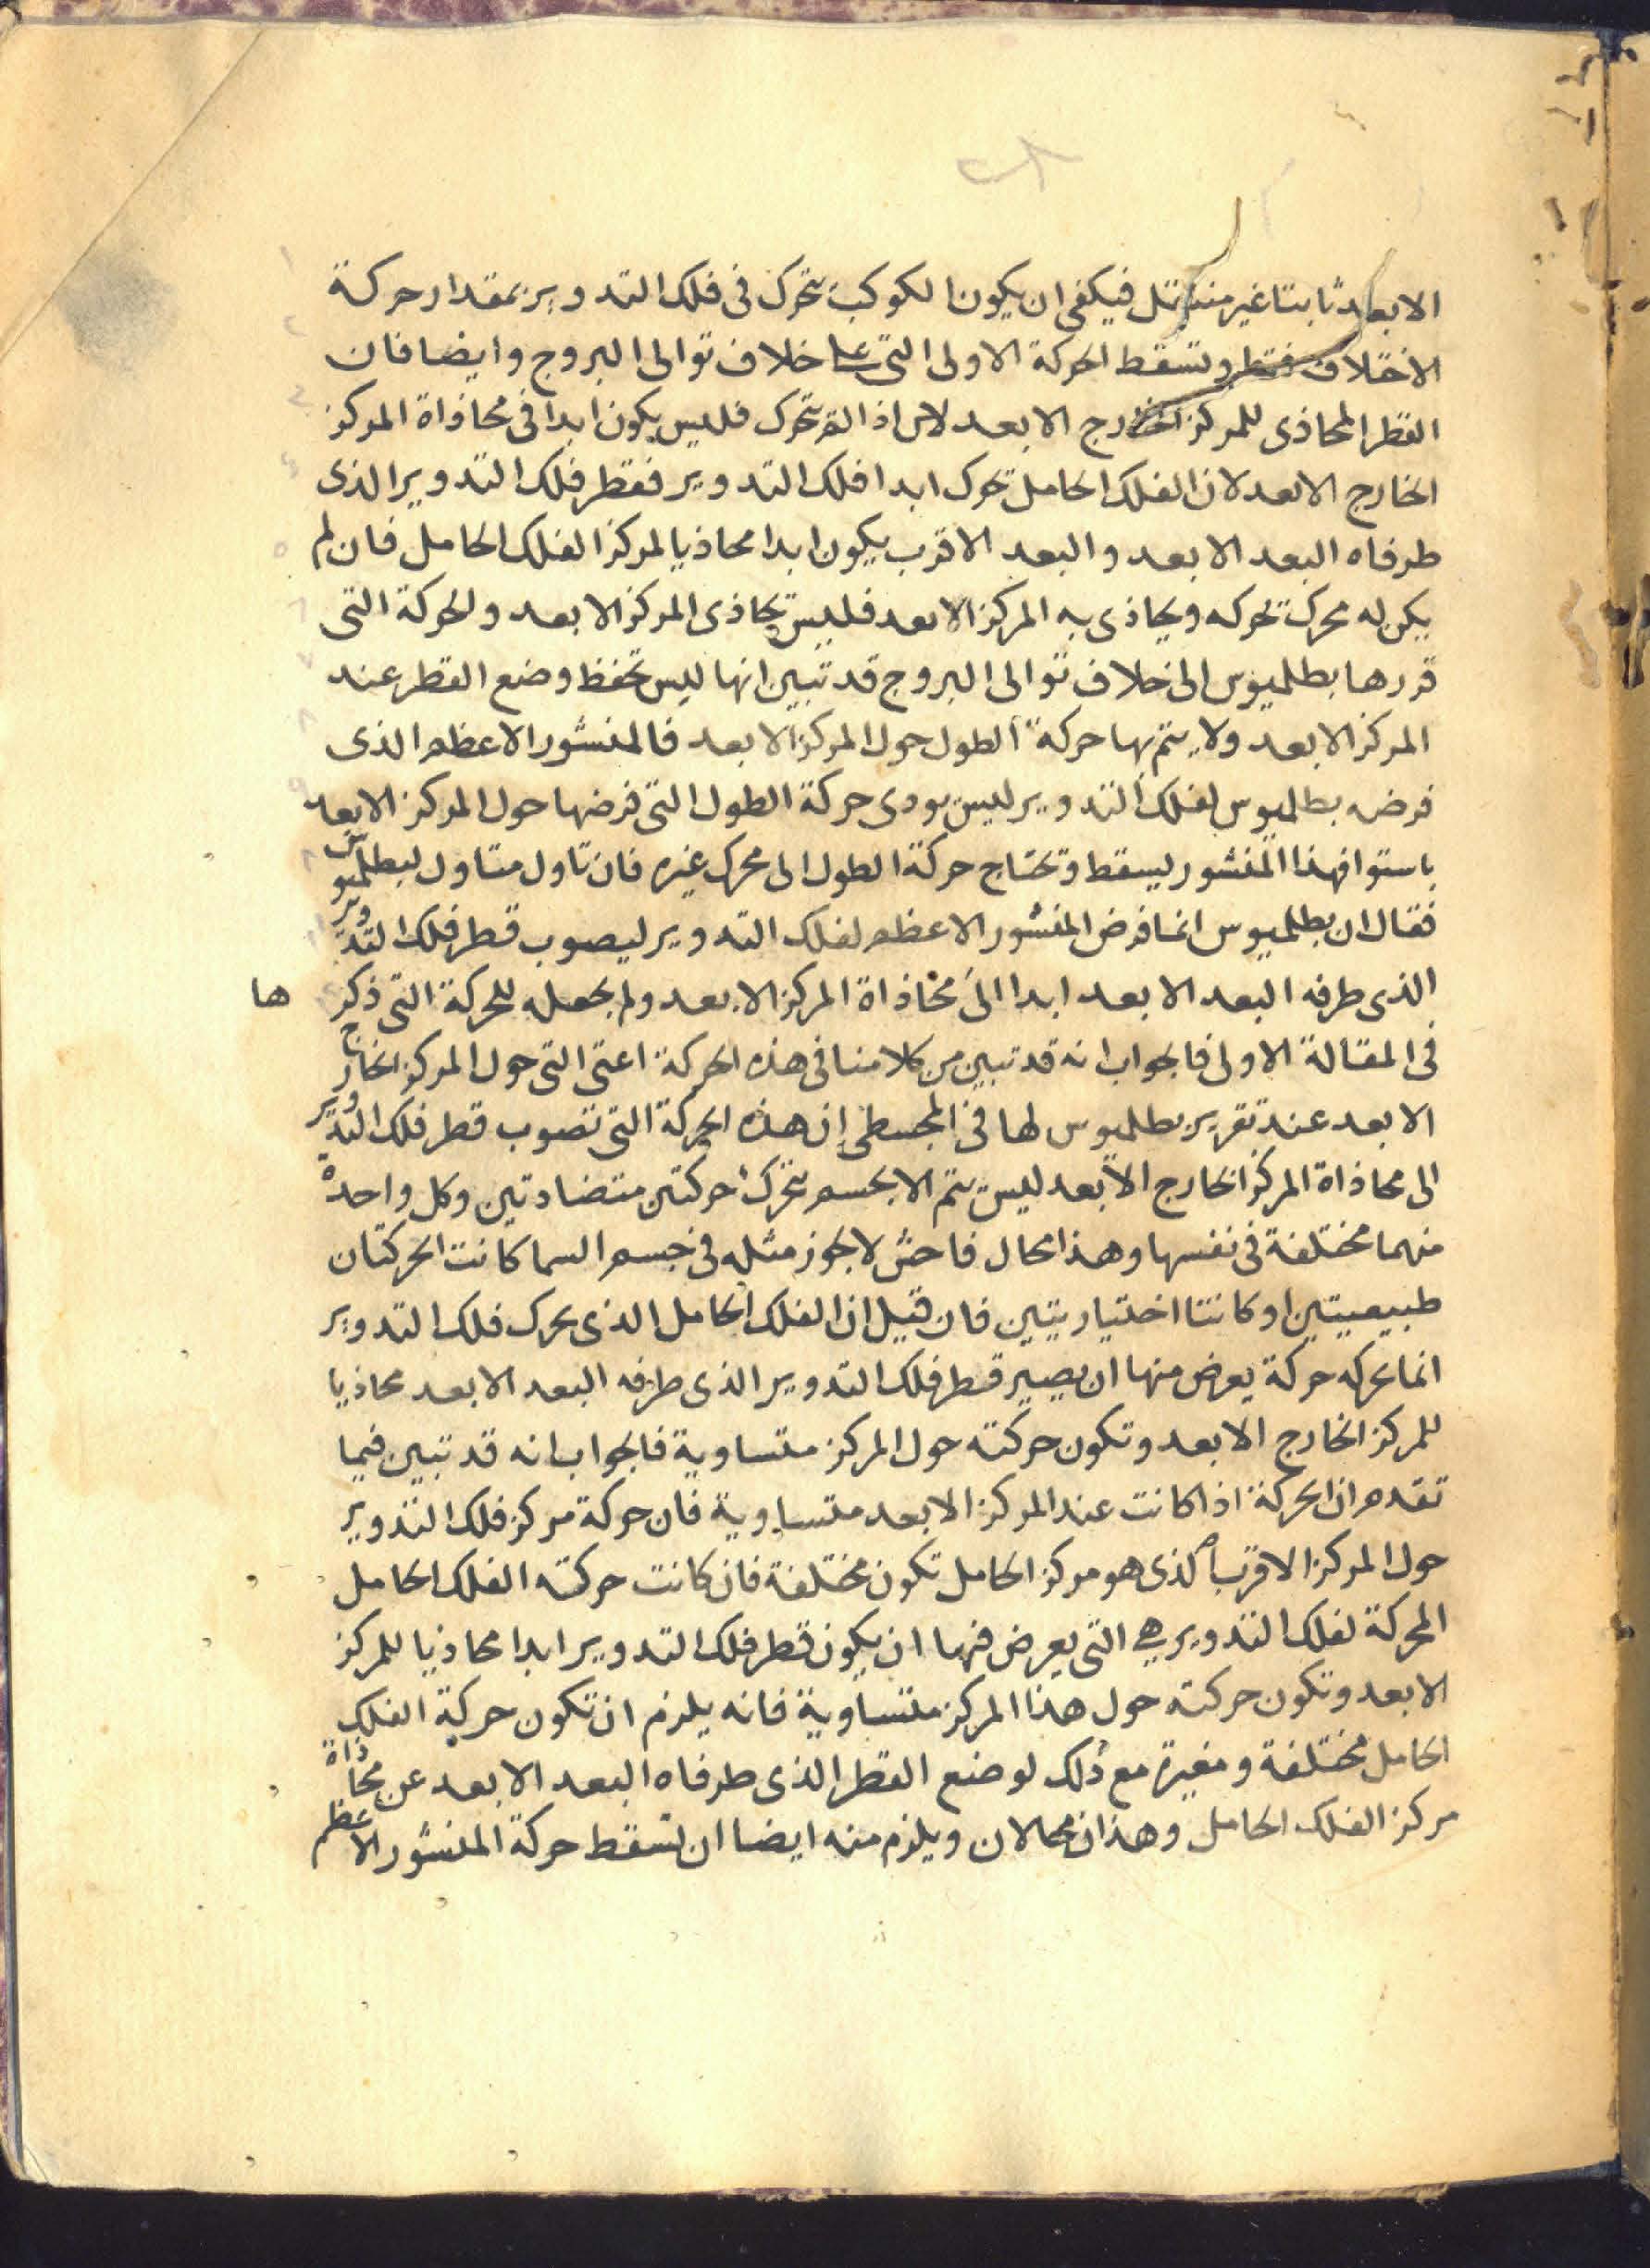 الابعد ثابتا غير منتقل فيكفى ان يكون الكوكب يتحرك فى فلك التدوير بمقدار حركة
الاختلاف فقط وتسقط الحركة الاولى التى على خلاف توالى البروج وايضا فان
القطر المحاذى للمركز الخارج الابعد تحرك فليس يكون ابدا فى محاذاة المركز
الخارج الابعد لان الفلك الحامل تحرك ابدا فلك التدوير فقطر فلك التدوير الذى
طرفاه البعد الابعد والبعد الاقرب يكون ابدا محاذيا لمركز الفلك الحامل فان لم
يكن له محرك تحركه ويحاذى به المركز الابعد فليس يحاذى المركز الابعد والحركة التى
قررها بطلميوس الى خلاف توالى البروج قد تبين انها ليس تحفظ وضع القطر عند
المركز الابعد ولا يتم بها حركة الطول حول المركز الابعد فالمنشور الاعظم الذى
فرضه بطلميوس لفلك التدوير ليس يودى حركة الطول التى فرضها حول المركز الابعد
باستوا فهذا المنشور ليسقط وتحتاج حركة الطول الى محرك غيره فان تاول متاول لبطلميوس
فقال ان بطلميوس انما فرض المنشور الاعظم لفلك التدوير ليصوب قطر فلك التدوير
الذى طرفه البعد الابعد ابدا الى محاذاة المركز الابعد ولم يجعله للحركة التى ذكرها
فى المقالة الاولى فالجواب انه قد تبين من كلامنا فى هذه الحركة اعنى التى حول المركز الخارج
الابعد عند تقرير بطلميوس لها فى المجسطى ان هذه الحركة التى تصوب قطر فلك التدوير
الى محاذاة المركز الخارج الابعد ليس يتم الا بجسم يتحرك حركتين متضادتين وكل واحدة
منهما مختلفة فى نفسها وهذا محال فاحش لا يجوز مثله فى جسم السما كانت الحركتان
طبيعيتين او كانتا اختياريتين فان قيل ان الفلك الحامل الذى يحرك فلك التدوير
انما يحركه حركة يعرض منها ان يصير قطر فلك التدوير الذى طرفه البعد الابعد محاذيا
للمركز الخارج الابعد وتكون حركته حول المركز متساوية فالجواب انه قد تبين فيما
تقدم ان الحركة اذا كانت عند المركز الابعد متساوية فان حركة مركز فلك التدوير
حول المركز الاقرب الذى هو مركز الحامل تكون مختلفة فان كانت حركته الفلك الحامل
المحركة لفلك التدوير هى التى يعرض فيها ان يكون قطر فلك التدوير ابدا محاذيا للمركز
الابعد وتكون حركته حول هذا المركز متساوية فانه يلزم ان تكون حركة الفلك
الحامل مختلفة ومغيرة مع ذلك لوضع القطر الذى طرفاه البعد الابعد عن محاذاة
مركز الفلك الحامل وهذان محالان ويلزم منه ايضا ان تسقط حركة المنشور الاعظم